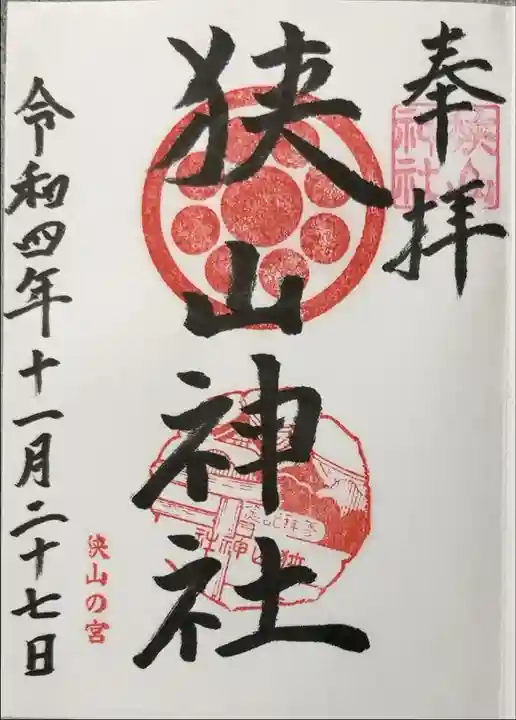 奉拝
狭山神社
狭山神社
参拝記念
狭山神社
令和四年十一月二十七日
狭山の宮